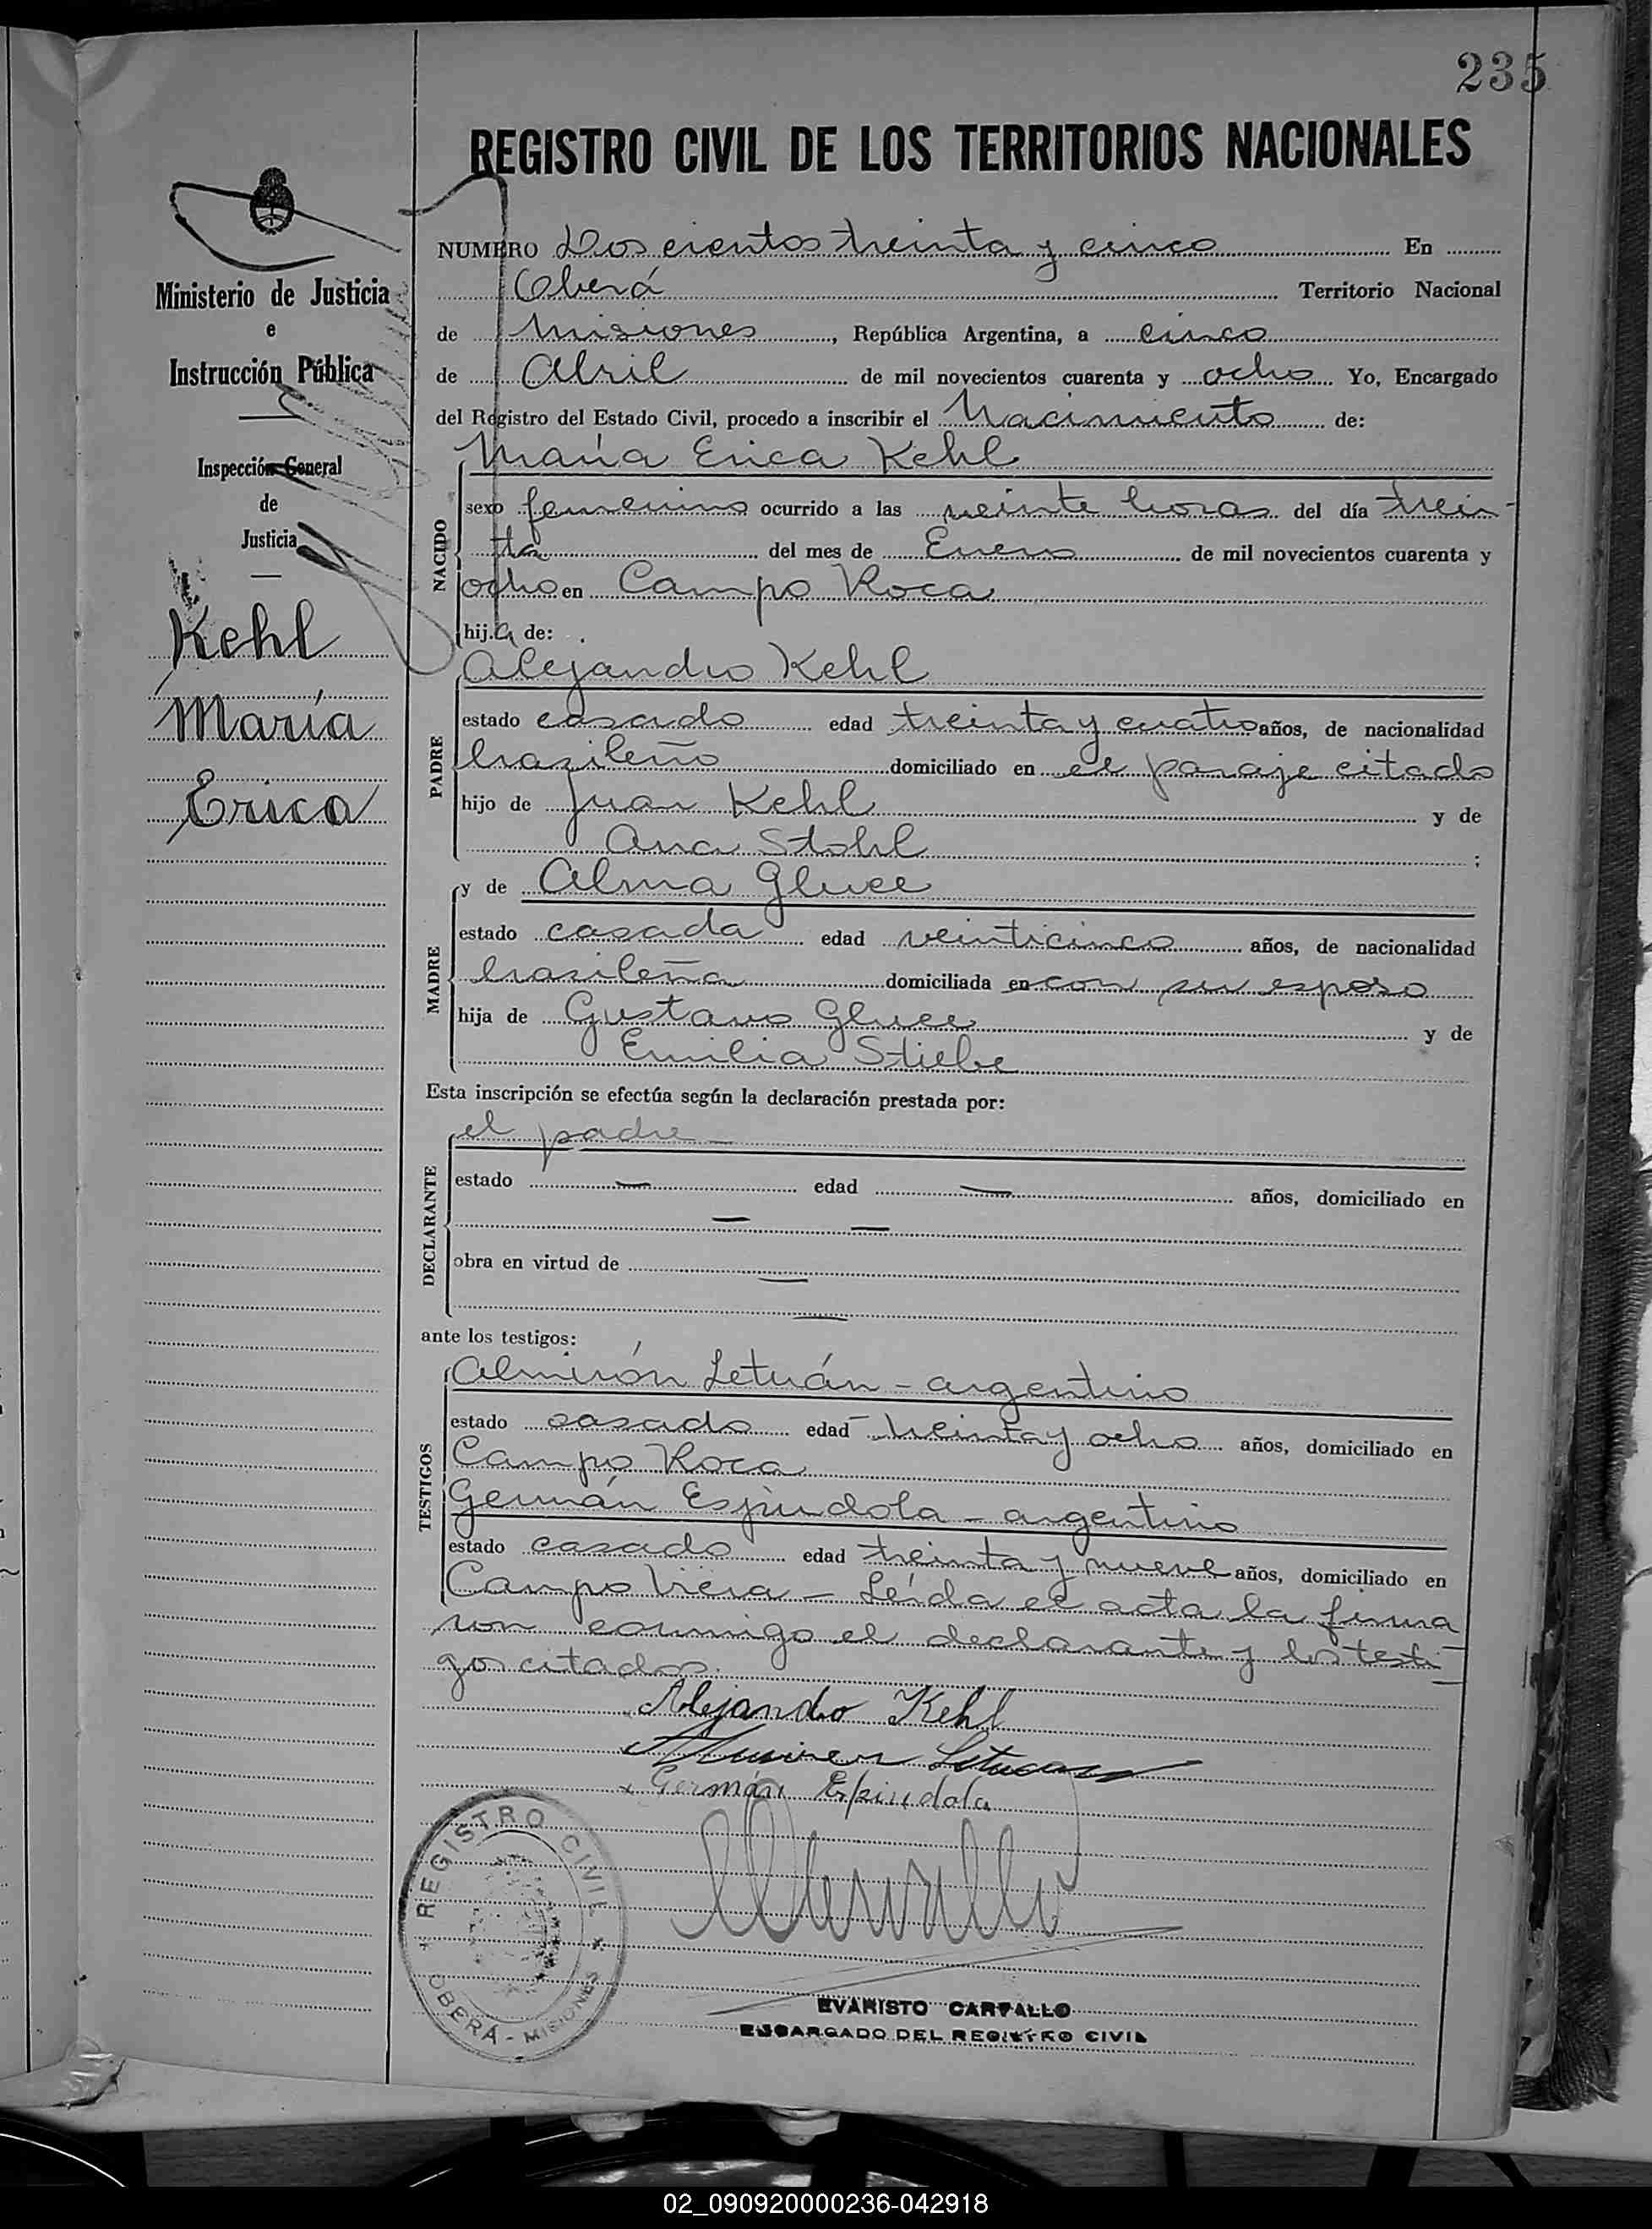 235
REGISTRO CIVIL DE LOS TERRITORIOS NACIONALES
Ministerio de Justicia
e
Instrucción Pública
Inspección General
de
Justicia
Kehl
María
Erica
NUMERO Doscientos treinta y cinco En
Oberá Territorio Nacional
de Misiones, República Argentina, a cinco
de Abril de mil novecientos cuarenta y ocho Yo, Encargado
del Registro del Estado Civil, procedo a inscribir el Nacimiento de:
NACIDO
María Erica Kehl
sexo femenino ocurrido a las veinte horas del día trein-
ta del mes de Enero de mil novecientos cuarenta y
ocho en Campo Roca
hija de:
PADRE
Alejandro Kehl
estado casado edad treinta y cuatro años, de nacionalidad
brasileño domiciliado en el paraje citado
hijo de Juan Kehl y de
Ana Stohl ;
MADRE
y de Alma Gluce
estado casada edad veinticinco años, de nacionalidad
brasileña domiciliada en con su esposo
hija de Gustavo Gluce y de
Emilia Stiebe
Esta inscripción se efectúa según la declaración prestada por:
DECLARANTE
el padre —
estado — edad — años, domiciliado en
— —
obra en virtud de —
—
ante los testigos:
TESTIGOS
Almirón Letuán - argentino
estado casado edad treinta y ocho años, domiciliado en
Campo Roca
Germán Espindola - argentino
estado casado edad treinta y nueve años, domiciliado en
Campo Viera - Leída el acta la firma
ron conmigo el declarante y los testi-
gos citados.
Alejandro Kehl
Germán Espindola
REGISTRO CIVIL
OBERÁ - MISIONES
EVARISTO CARVALLO
ENCARGADO DEL REGISTRO CIVIL
02_090920000236-042918